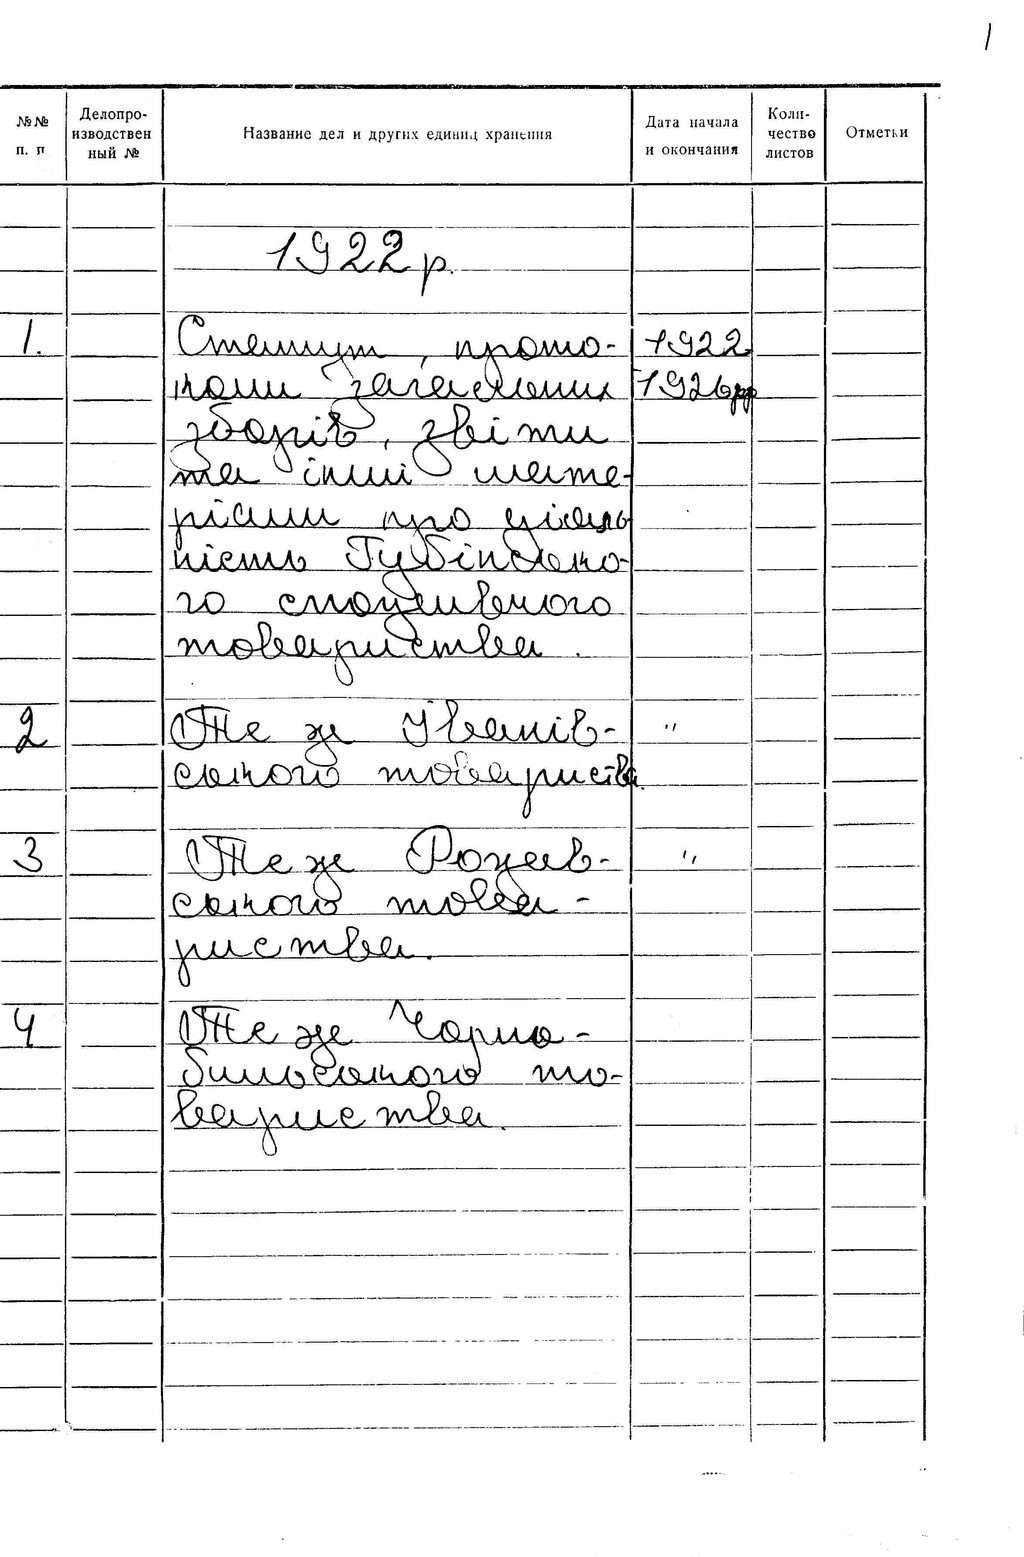 /
№№ п. п
Делопро-
изводствен
ный №
Название дел и других единиц хранения
Дата начала
и окончания
Коли-
чество
листов
Отметки
1922 р.
1. Статут, прото- 1922
коли загальних 1926 рр
зборів, звіти
та інші мате-
ріали про діяль
ність Губінсько-
го споживчого
товариства.
2 Те ж Іванів- "
ського товариства.
3 Те ж Рожів- "
ського това-
риства.
4 Те ж Чорно-
бильського то-
вариства.